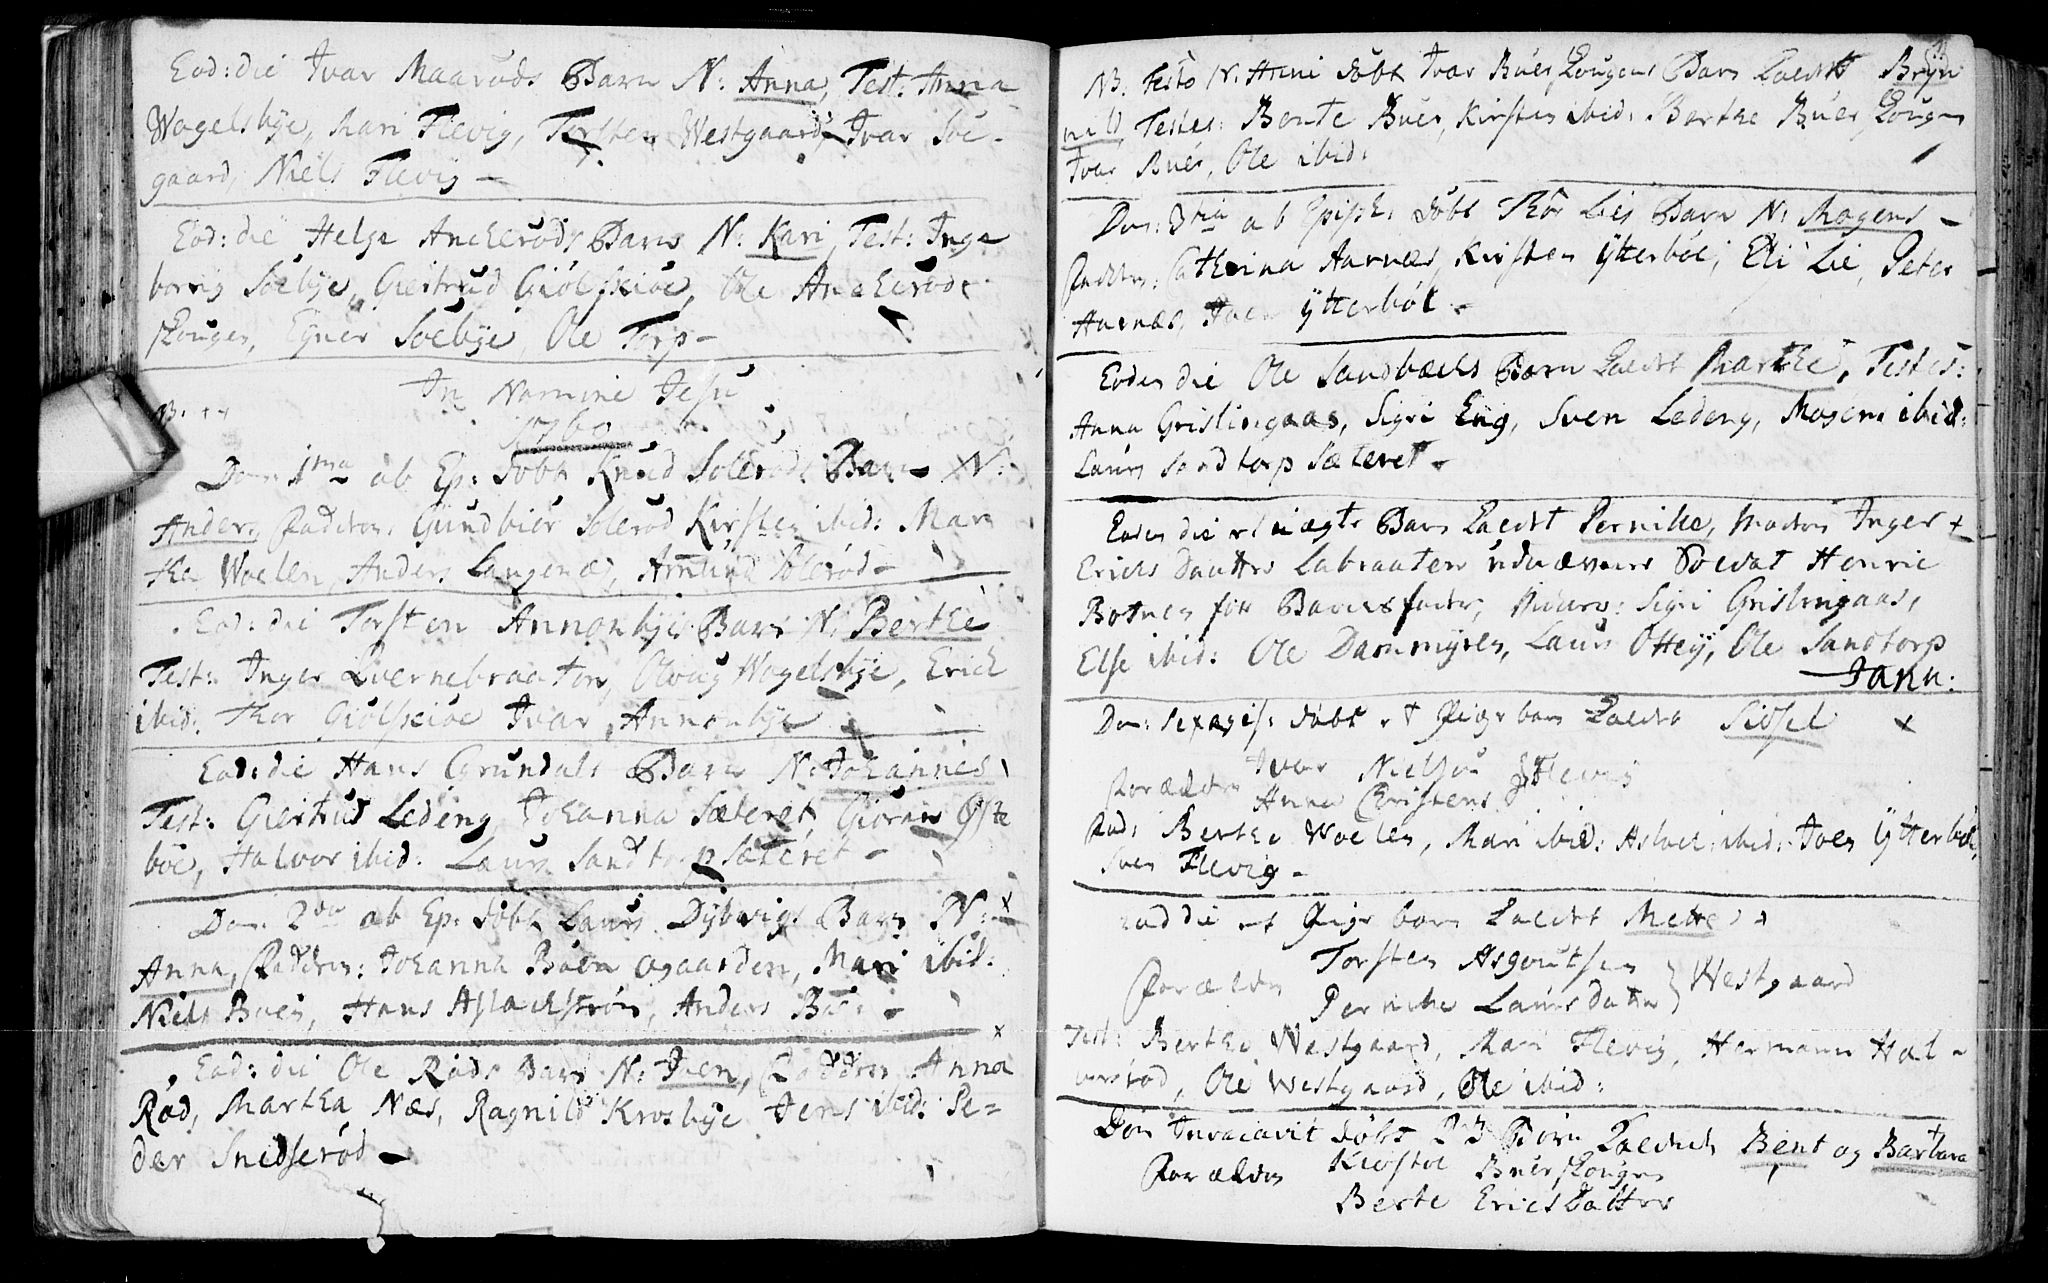 Eod: die Ivar Maarøds Barn N: Anna, Test: Anna
Wogelsbye, Mari Flevig, Torsten Westgaard, Ivar Soe-
gaard, Niels Flevig -
Eod: die Helge Anckerøds Barn N: Kari, Test: Inge
borrig Soebye, Giertrud Giølsiøe, Ole Anckerøds
skougen, Eyner Soebye, Ole Torp -
In Nomine Jesu
NB. ++
1760
Dom: 1ma ab Ep: døbt Knud Solerøds Barn N:
Anders, Faddrene: Gundbiør Solerød Kirsten ibid: Mar
tha Woelen, Anders Langenæ, Amund Solerød -
Eod: die Torsten Annonbyes Barn N: Berthe
Test: Inger Qvernebraaten, Oloug Wogelsbye, Erich
ibid: Thor Giølsiøe Ivar Annonbye
Eod: die Hans Grundals Barn N: Johannes
Test: Giertrud Ledeng, Johanna Sæteret, Giøran Øste
bøe, Halvor ibid: Laurs Sandtorp Sæteret -
Dom: 2da ab Ep: døbt Laurs Dybvigs Barn N:
Anna, Faddrene: Johanna Buen Ogaarden, Mari ibid:
Niels Buen, Hans Aslackstrøm, Anders Bu: -
Eod: die Ole Røds Barn N: Joen, Faddrene Anna
Rød, Martha Næs, Ragnild Krosbye Jens ibid: Pe=
der Snedserød -
NB. Festo N: Anni døbt Ivar Buer Skougens Barn kaldt Bryn
nild, Testes: Bente Buer, Kirsten ibid: Berthe Buer Skougen
Ivar Buer, Ole ibid:
Dom: 3tia ab Epiph: døbt Thor Lies Barn N: Mogens -
Faddrene: Cathrina Aarnæs, Kirsten Ytterbøe, Eli Lie, Peter
Aarnæs, Joen Ytterbøe -
Eodem die Ole Sandbæchs Barn kaldt Marthe, Testes:
Anna Grislingaas, Sigri Eng, Sven Ledeng, Mogens ibid:
Laurs Sandtorp Sæteret -
Eodem die et uægte Barn kaldt Pernille, Modren Inger
Erichs Daatter Labraaten udnævner Soldat Henric
Botner for Barnefader, Sigri Grislingaas,
Else ibid: Ole Dammyren, Laurs Ottey, Ole Sandtorp
Janu:
Dom: Sexagis: døbt et Pige barn kaldt Sidsel
Forældre Ivar Nielsen Flevig
Anna Christens
Fad: Berthe Woelen, Mari ibid: Aslach ibid: Joen Ytterbøe,
Sven Flevig -
Eod die et Pige barn kaldt Mette
Forældre Torsten Asgoutsen Westgaard
Pernille Laurs datter
Test: Berthe Westgaard, Mari Flevig, Hermann Hal-
vorsrød, Ole Westgaard, Ole ibid:
Dom Invocavit døbt 2 Børn kaldet Bent og Barbara
Forældre Kiøstol Buer Skougen
Berte Ericsdatter